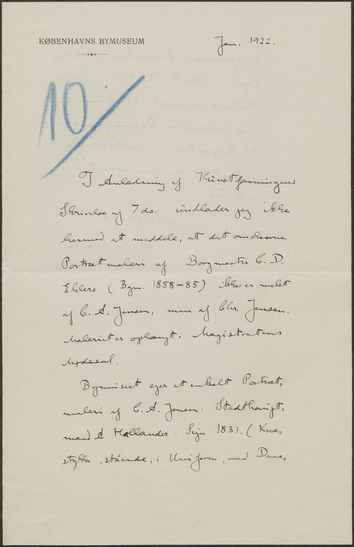 KØBENHAVNS BYMUSEUM
Jan. 1922.
10
I Anledning af Kunstforeningens
Skrivelse af 7 ds. undlader jeg ikke
herved at meddele, at det omskrevne
Portrætmaleri af Borgmester C. D.
Ehlers (Bgm. 1858-85) ikke er malet
af C. A. Jensen, men af Chr. Jensen.
Maleriet er ophængt i Magistratens
Mødesal.
Bymuseet ejer et enkelt Portræt,
maleri af C. A. Jensen: Stadthaupt-
mand Hollander. Sign 1831. (Knæ
stykke, stående, i Uniform, med